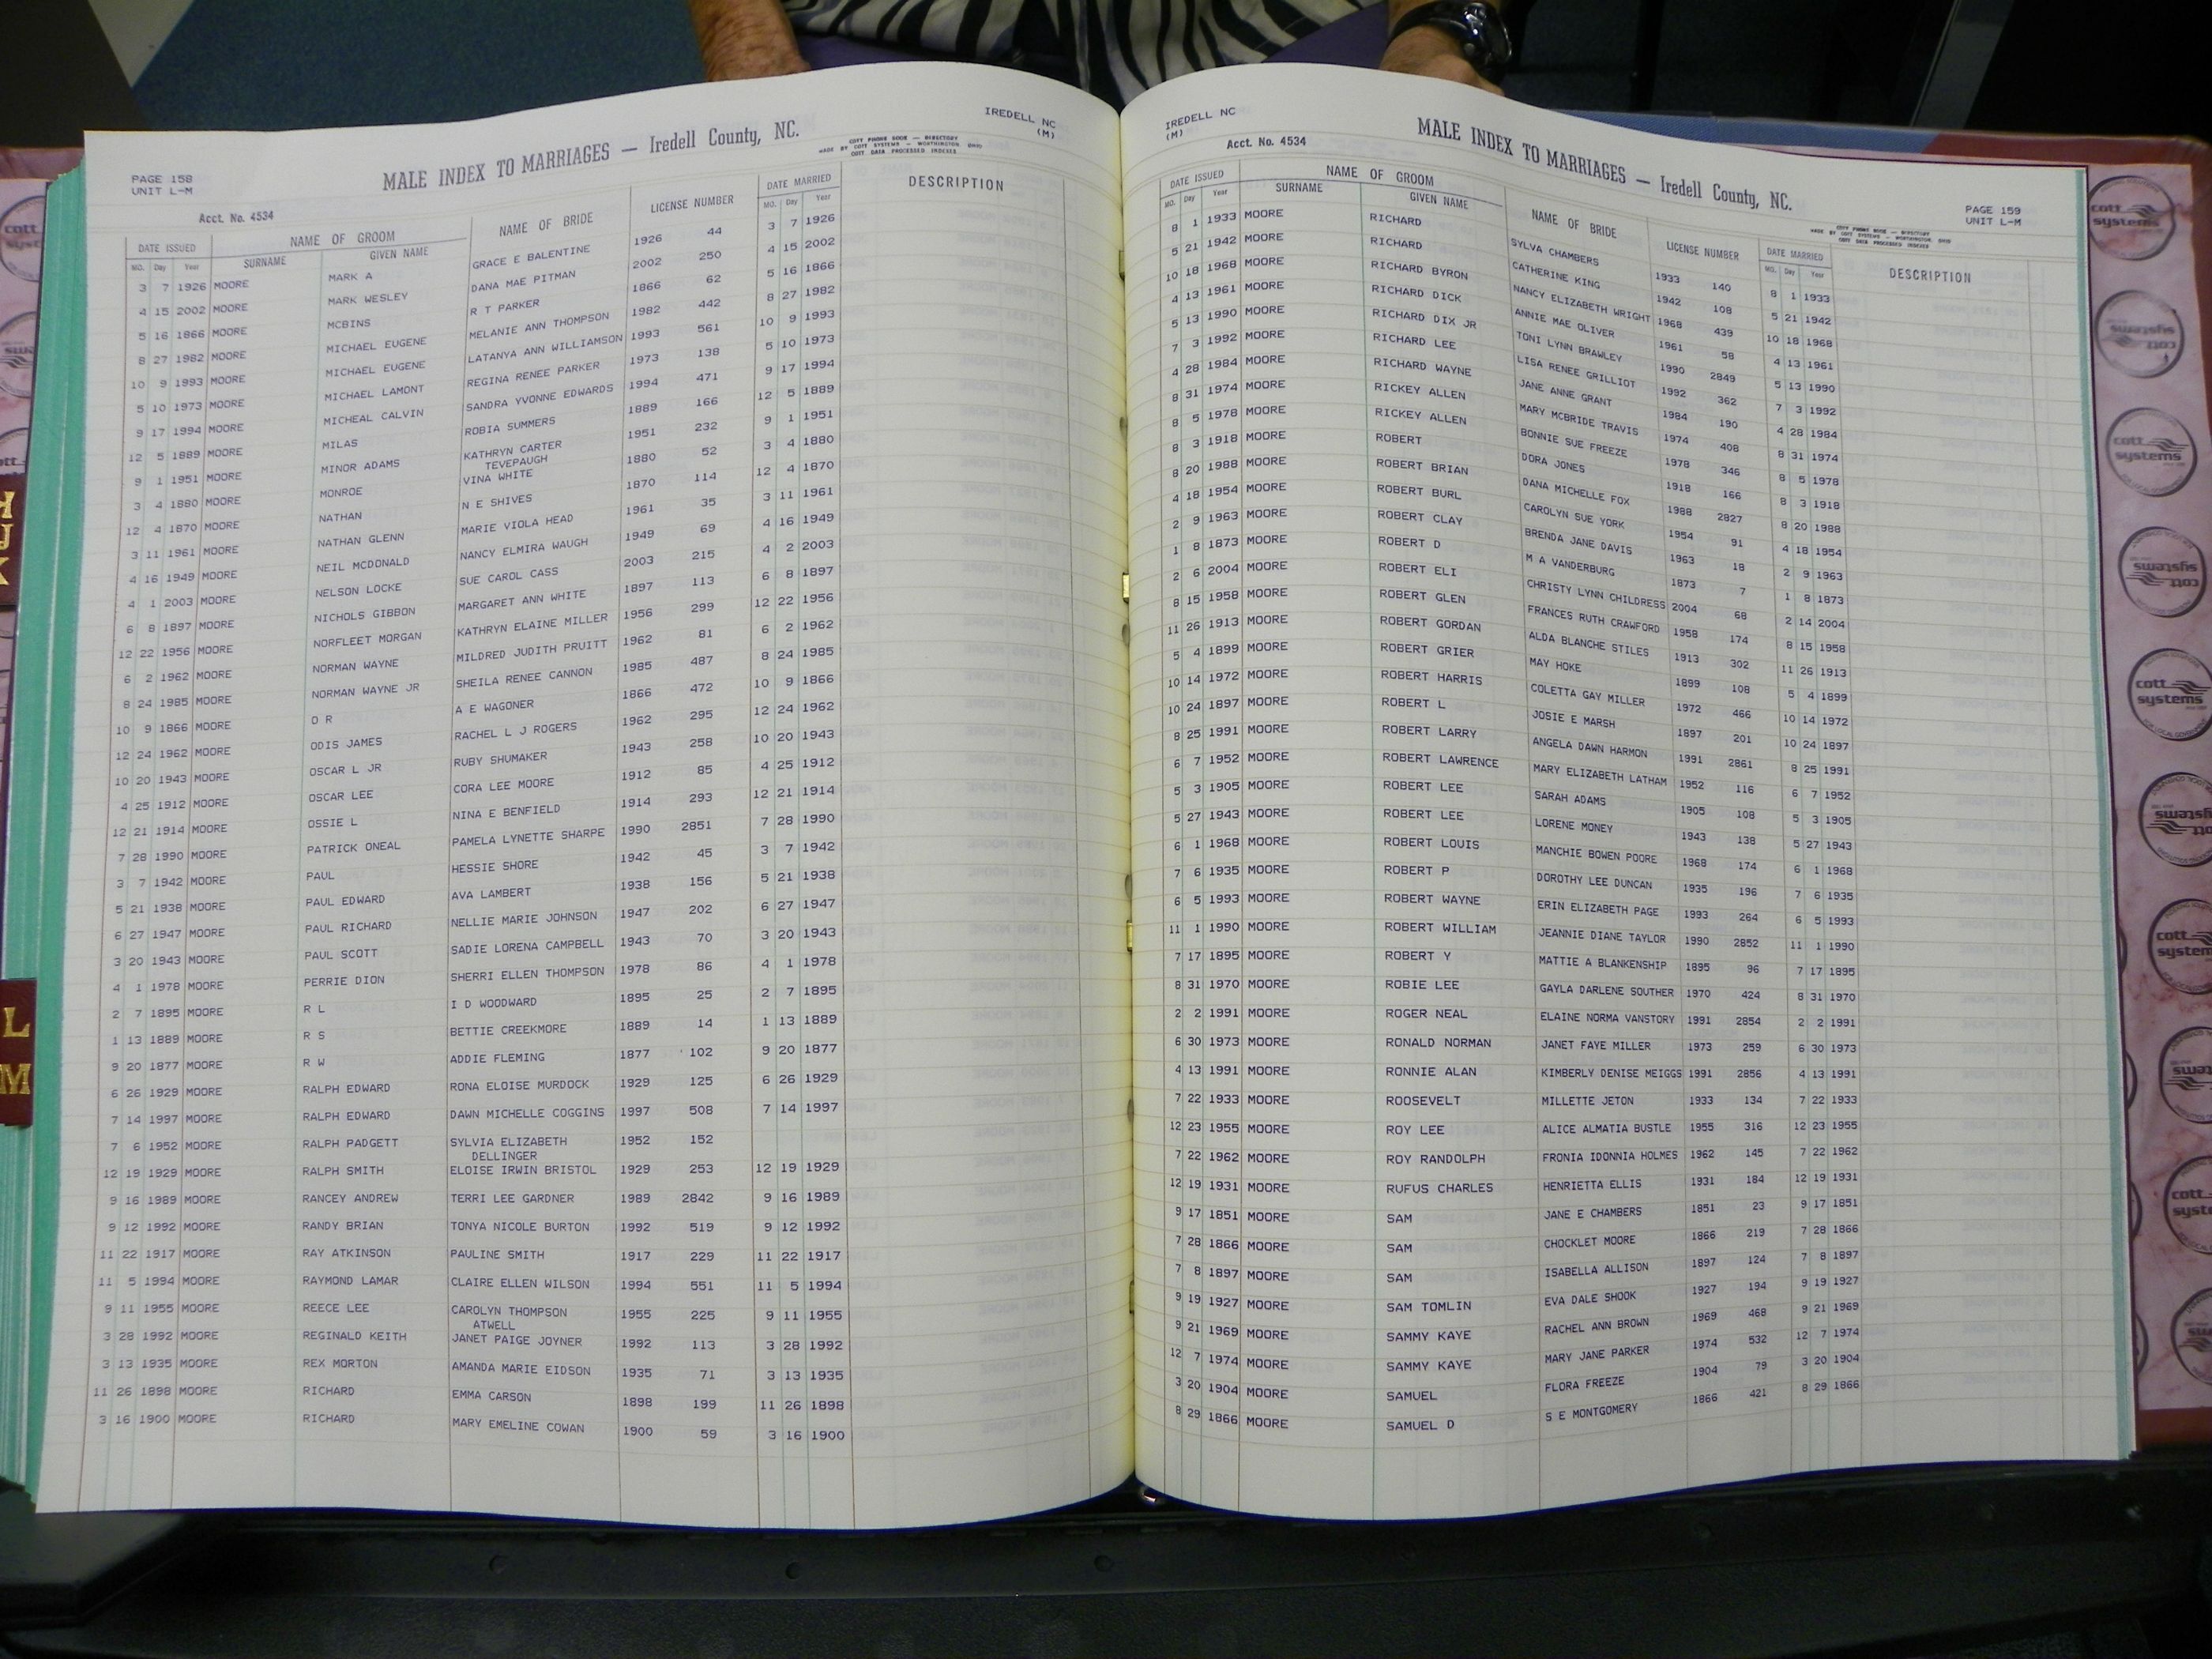 IREDELL NC
(M)
MALE INDEX TO MARRIAGES — Iredell County, NC.
COTT PHONE BOOK — DIRECTORY
MADE BY COTT SYSTEMS — WORTHINGTON, OHIO
COTT DATA PROCESSED INDEXES
PAGE 158
UNIT L-M
Acct. No. 4534
DATE ISSUED NAME OF GROOM NAME OF BRIDE LICENSE NUMBER DATE MARRIED DESCRIPTION
MO. Day Year SURNAME GIVEN NAME MO. Day Year
3 7 1926 MOORE MARK A GRACE E BALENTINE 1926 44 3 7 1926
4 15 2002 MOORE MARK WESLEY DANA MAE PITMAN 2002 250 4 15 2002
5 16 1866 MOORE MCBINS R T PARKER 1866 62 5 16 1866
8 27 1982 MOORE MICHAEL EUGENE MELANIE ANN THOMPSON 1982 442 8 27 1982
10 9 1993 MOORE MICHAEL EUGENE LATANYA ANN WILLIAMSON 1993 561 10 9 1993
5 10 1973 MOORE MICHAEL LAMONT REGINA RENEE PARKER 1973 138 5 10 1973
9 17 1994 MOORE MICHEAL CALVIN SANDRA YVONNE EDWARDS 1994 471 9 17 1994
12 5 1889 MOORE MILAS ROBIA SUMMERS 1889 166 12 5 1889
9 1 1951 MOORE MINOR ADAMS KATHRYN CARTER 1951 232 9 1 1951
TEVEPAUGH
3 4 1880 MOORE MONROE VINA WHITE 1880 52 3 4 1880
12 4 1870 MOORE NATHAN N E SHIVES 1870 114 12 4 1870
3 11 1961 MOORE NATHAN GLENN MARIE VIOLA HEAD 1961 35 3 11 1961
4 16 1949 MOORE NEIL MCDONALD NANCY ELMIRA WAUGH 1949 69 4 16 1949
4 1 2003 MOORE NELSON LOCKE SUE CAROL CASS 2003 215 4 2 2003
6 8 1897 MOORE NICHOLS GIBBON MARGARET ANN WHITE 1897 113 6 8 1897
12 22 1956 MOORE NORFLEET MORGAN KATHRYN ELAINE MILLER 1956 299 12 22 1956
6 2 1962 MOORE NORMAN WAYNE MILDRED JUDITH PRUITT 1962 81 6 2 1962
8 24 1985 MOORE NORMAN WAYNE JR SHEILA RENEE CANNON 1985 487 8 24 1985
10 9 1866 MOORE O R A E WAGONER 1866 472 10 9 1866
12 24 1962 MOORE ODIS JAMES RACHEL L J ROGERS 1962 295 12 24 1962
10 20 1943 MOORE OSCAR L JR RUBY SHUMAKER 1943 258 10 20 1943
4 25 1912 MOORE OSCAR LEE CORA LEE MOORE 1912 85 4 25 1912
12 21 1914 MOORE OSSIE L NINA E BENFIELD 1914 293 12 21 1914
7 28 1990 MOORE PATRICK ONEAL PAMELA LYNETTE SHARPE 1990 2851 7 28 1990
3 7 1942 MOORE PAUL HESSIE SHORE 1942 45 3 7 1942
5 21 1938 MOORE PAUL EDWARD AVA LAMBERT 1938 156 5 21 1938
6 27 1947 MOORE PAUL RICHARD NELLIE MARIE JOHNSON 1947 202 6 27 1947
3 20 1943 MOORE PAUL SCOTT SADIE LORENA CAMPBELL 1943 70 3 20 1943
4 1 1978 MOORE PERRIE DION SHERRI ELLEN THOMPSON 1978 86 4 1 1978
2 7 1895 MOORE R L I D WOODWARD 1895 25 2 7 1895
1 13 1889 MOORE R S BETTIE CREEKMORE 1889 14 1 13 1889
9 20 1877 MOORE R W ADDIE FLEMING 1877 102 9 20 1877
6 26 1929 MOORE RALPH EDWARD RONA ELOISE MURDOCK 1929 125 6 26 1929
7 14 1997 MOORE RALPH EDWARD DAWN MICHELLE COGGINS 1997 508 7 14 1997
7 6 1952 MOORE RALPH PADGETT SYLVIA ELIZABETH 1952 152
DELLINGER
12 19 1929 MOORE RALPH SMITH ELOISE IRWIN BRISTOL 1929 253 12 19 1929
9 16 1989 MOORE RANCEY ANDREW TERRI LEE GARDNER 1989 2842 9 16 1989
9 12 1992 MOORE RANDY BRIAN TONYA NICOLE BURTON 1992 519 9 12 1992
11 22 1917 MOORE RAY ATKINSON PAULINE SMITH 1917 229 11 22 1917
11 5 1994 MOORE RAYMOND LAMAR CLAIRE ELLEN WILSON 1994 551 11 5 1994
9 11 1955 MOORE REECE LEE CAROLYN THOMPSON 1955 225 9 11 1955
ATWELL
3 28 1992 MOORE REGINALD KEITH JANET PAIGE JOYNER 1992 113 3 28 1992
3 13 1935 MOORE REX MORTON AMANDA MARIE EIDSON 1935 71 3 13 1935
11 26 1898 MOORE RICHARD EMMA CARSON 1898 199 11 26 1898
3 16 1900 MOORE RICHARD MARY EMELINE COWAN 1900 59 3 16 1900
IREDELL NC
(M)
MALE INDEX TO MARRIAGES — Iredell County, NC.
Acct. No. 4534
PAGE 159
UNIT L-M
COTT PHONE BOOK — DIRECTORY
MADE BY COTT SYSTEMS — WORTHINGTON, OHIO
COTT DATA PROCESSED INDEXES
DATE ISSUED NAME OF GROOM NAME OF BRIDE LICENSE NUMBER DATE MARRIED DESCRIPTION
MO. Day Year SURNAME GIVEN NAME MO. Day Year
8 1 1933 MOORE RICHARD SYLVA CHAMBERS 1933 140 8 1 1933
5 21 1942 MOORE RICHARD CATHERINE KING 1942 108 5 21 1942
10 18 1968 MOORE RICHARD BYRON NANCY ELIZABETH WRIGHT 1968 439 10 18 1968
4 13 1961 MOORE RICHARD DICK ANNIE MAE OLIVER 1961 58 4 13 1961
5 13 1990 MOORE RICHARD DIX JR TONI LYNN BRAWLEY 1990 2849 5 13 1990
7 3 1992 MOORE RICHARD LEE LISA RENEE GRILLIOT 1992 362 7 3 1992
4 28 1984 MOORE RICHARD WAYNE JANE ANNE GRANT 1984 190 4 28 1984
8 31 1974 MOORE RICKEY ALLEN MARY MCBRIDE TRAVIS 1974 408 8 31 1974
8 5 1978 MOORE RICKEY ALLEN BONNIE SUE FREEZE 1978 346 8 5 1978
8 3 1918 MOORE ROBERT DORA JONES 1918 166 8 3 1918
8 20 1988 MOORE ROBERT BRIAN DANA MICHELLE FOX 1988 2827 8 20 1988
4 18 1954 MOORE ROBERT BURL CAROLYN SUE YORK 1954 91 4 18 1954
2 9 1963 MOORE ROBERT CLAY BRENDA JANE DAVIS 1963 18 2 9 1963
1 8 1873 MOORE ROBERT D M A VANDERBURG 1873 7 1 8 1873
2 6 2004 MOORE ROBERT ELI CHRISTY LYNN CHILDRESS 2004 68 2 14 2004
8 15 1958 MOORE ROBERT GLEN FRANCES RUTH CRAWFORD 1958 174 8 15 1958
11 26 1913 MOORE ROBERT GORDAN ALDA BLANCHE STILES 1913 302 11 26 1913
5 4 1899 MOORE ROBERT GRIER MAY HOKE 1899 108 5 4 1899
10 14 1972 MOORE ROBERT HARRIS COLETTA GAY MILLER 1972 466 10 14 1972
10 24 1897 MOORE ROBERT L JOSIE E MARSH 1897 201 10 24 1897
8 25 1991 MOORE ROBERT LARRY ANGELA DAWN HARMON 1991 2861 8 25 1991
6 7 1952 MOORE ROBERT LAWRENCE MARY ELIZABETH LATHAM 1952 116 6 7 1952
5 3 1905 MOORE ROBERT LEE SARAH ADAMS 1905 108 5 3 1905
5 27 1943 MOORE ROBERT LEE LORENE MONEY 1943 138 5 27 1943
6 1 1968 MOORE ROBERT LOUIS MANCHIE BOWEN POORE 1968 174 6 1 1968
7 6 1935 MOORE ROBERT P DOROTHY LEE DUNCAN 1935 196 7 6 1935
6 5 1993 MOORE ROBERT WAYNE ERIN ELIZABETH PAGE 1993 264 6 5 1993
11 1 1990 MOORE ROBERT WILLIAM JEANNIE DIANE TAYLOR 1990 2852 11 1 1990
7 17 1895 MOORE ROBERT Y MATTIE A BLANKENSHIP 1895 96 7 17 1895
8 31 1970 MOORE ROBIE LEE GAYLA DARLENE SOUTHER 1970 424 8 31 1970
2 2 1991 MOORE ROGER NEAL ELAINE NORMA VANSTORY 1991 2854 2 2 1991
6 30 1973 MOORE RONALD NORMAN JANET FAYE MILLER 1973 259 6 30 1973
4 13 1991 MOORE RONNIE ALAN KIMBERLY DENISE MEIGGS 1991 2856 4 13 1991
7 22 1933 MOORE ROOSEVELT MILLETTE JETON 1933 134 7 22 1933
12 23 1955 MOORE ROY LEE ALICE ALMATIA BUSTLE 1955 316 12 23 1955
7 22 1962 MOORE ROY RANDOLPH FRONIA IDONNIA HOLMES 1962 145 7 22 1962
12 19 1931 MOORE RUFUS CHARLES HENRIETTA ELLIS 1931 184 12 19 1931
9 17 1851 MOORE SAM JANE E CHAMBERS 1851 23 9 17 1851
7 28 1866 MOORE SAM CHOCKLET MOORE 1866 219 7 28 1866
7 8 1897 MOORE SAM ISABELLA ALLISON 1897 124 7 8 1897
9 19 1927 MOORE SAM TOMLIN EVA DALE SHOOK 1927 194 9 19 1927
9 21 1969 MOORE SAMMY KAYE RACHEL ANN BROWN 1969 468 9 21 1969
12 7 1974 MOORE SAMMY KAYE MARY JANE PARKER 1974 532 12 7 1974
3 20 1904 MOORE SAMUEL FLORA FREEZE 1904 79 3 20 1904
8 29 1866 MOORE SAMUEL D S E MONTGOMERY 1866 421 8 29 1866
L
M
cott
systems
cott
systems
cott
systems